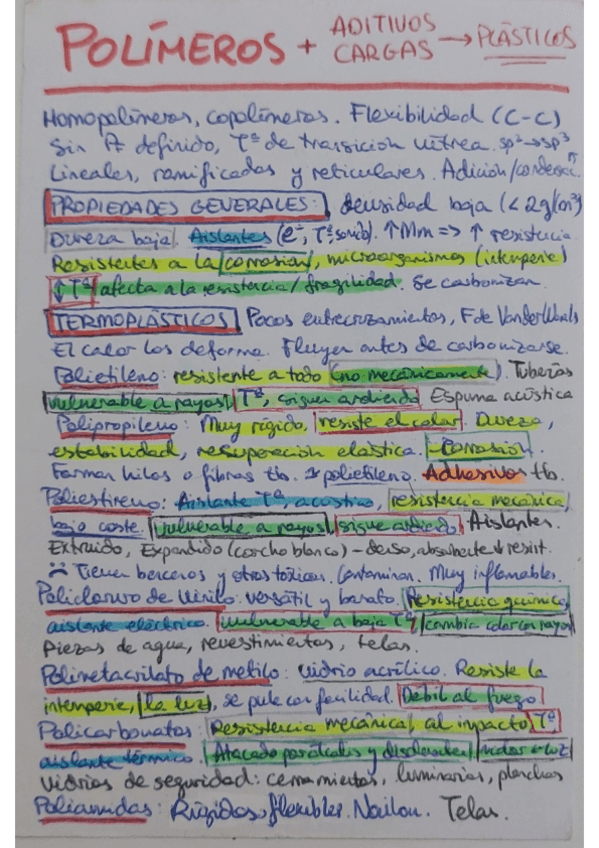 POLÍMEROS + ADITIVOS CARGAS → PLÁSTICOS
Homopolímeros, copolímeros. Flexibilidad (C-C)
Sin Pf definido, Tª de transición vítrea. sp²→sp³
Lineales, ramificadas y reticulares. Adición/condensac.
PROPIEDADES GENERALES: densidad baja (<2g/cm³)
Dureza baja. Aislantes (e⁻, Tª, sonido). ↑Mm => ↑ resistencia
Resistentes a la corrosión, microorganismos (intemperie)
↓Tª afecta a la resistencia/fragilidad. Se carbonizan.
TERMOPLÁSTICOS Pocos entrecruzamientos, F de Van der Waals
El calor los deforma. Fluyen antes de carbonizarse.
Polietileno: resistente a todo (no mecánicamente). Tuberías
vulnerable a rayos Tª, sigue ardiendo Espuma acústica
Polipropileno: Muy rígido, resiste el calor. Dureza,
estabilidad, recuperación elástica. -Corrosión.
Forman hilos o fibras tb. polietileno. Adhesivos tb.
Poliestireno: Aislante Tª, acústico, resistencia mecánica,
bajo coste. vulnerable a rayos, sigue ardiendo Aislantes.
Extruido, Expandido (corcho blanco) - denso, absorbente ↓ resist.
Tienen bencenos y otras tóxicas. Contaminan. Muy inflamables.
Policloruro de vinilo: versátil y barato. Resistencia química,
aislante eléctrico. vulnerable a baja Tª, cambia color con rayos
Piezas de agua, revestimientos, telas.
Polimetacrilato de metilo: vidrio acrílico. Resiste la
intemperie, la luz, se pule con facilidad. Débil al fuego
Policarbonatos: Resistencia mecánica, al impacto, Tª,
aislante térmico. Atacado por álcalis y disolventes,
Vidrios de seguridad: cerramientos, luminarias, planchas
Poliamidas: Rígidas, flexibles. Nailon. Telas.